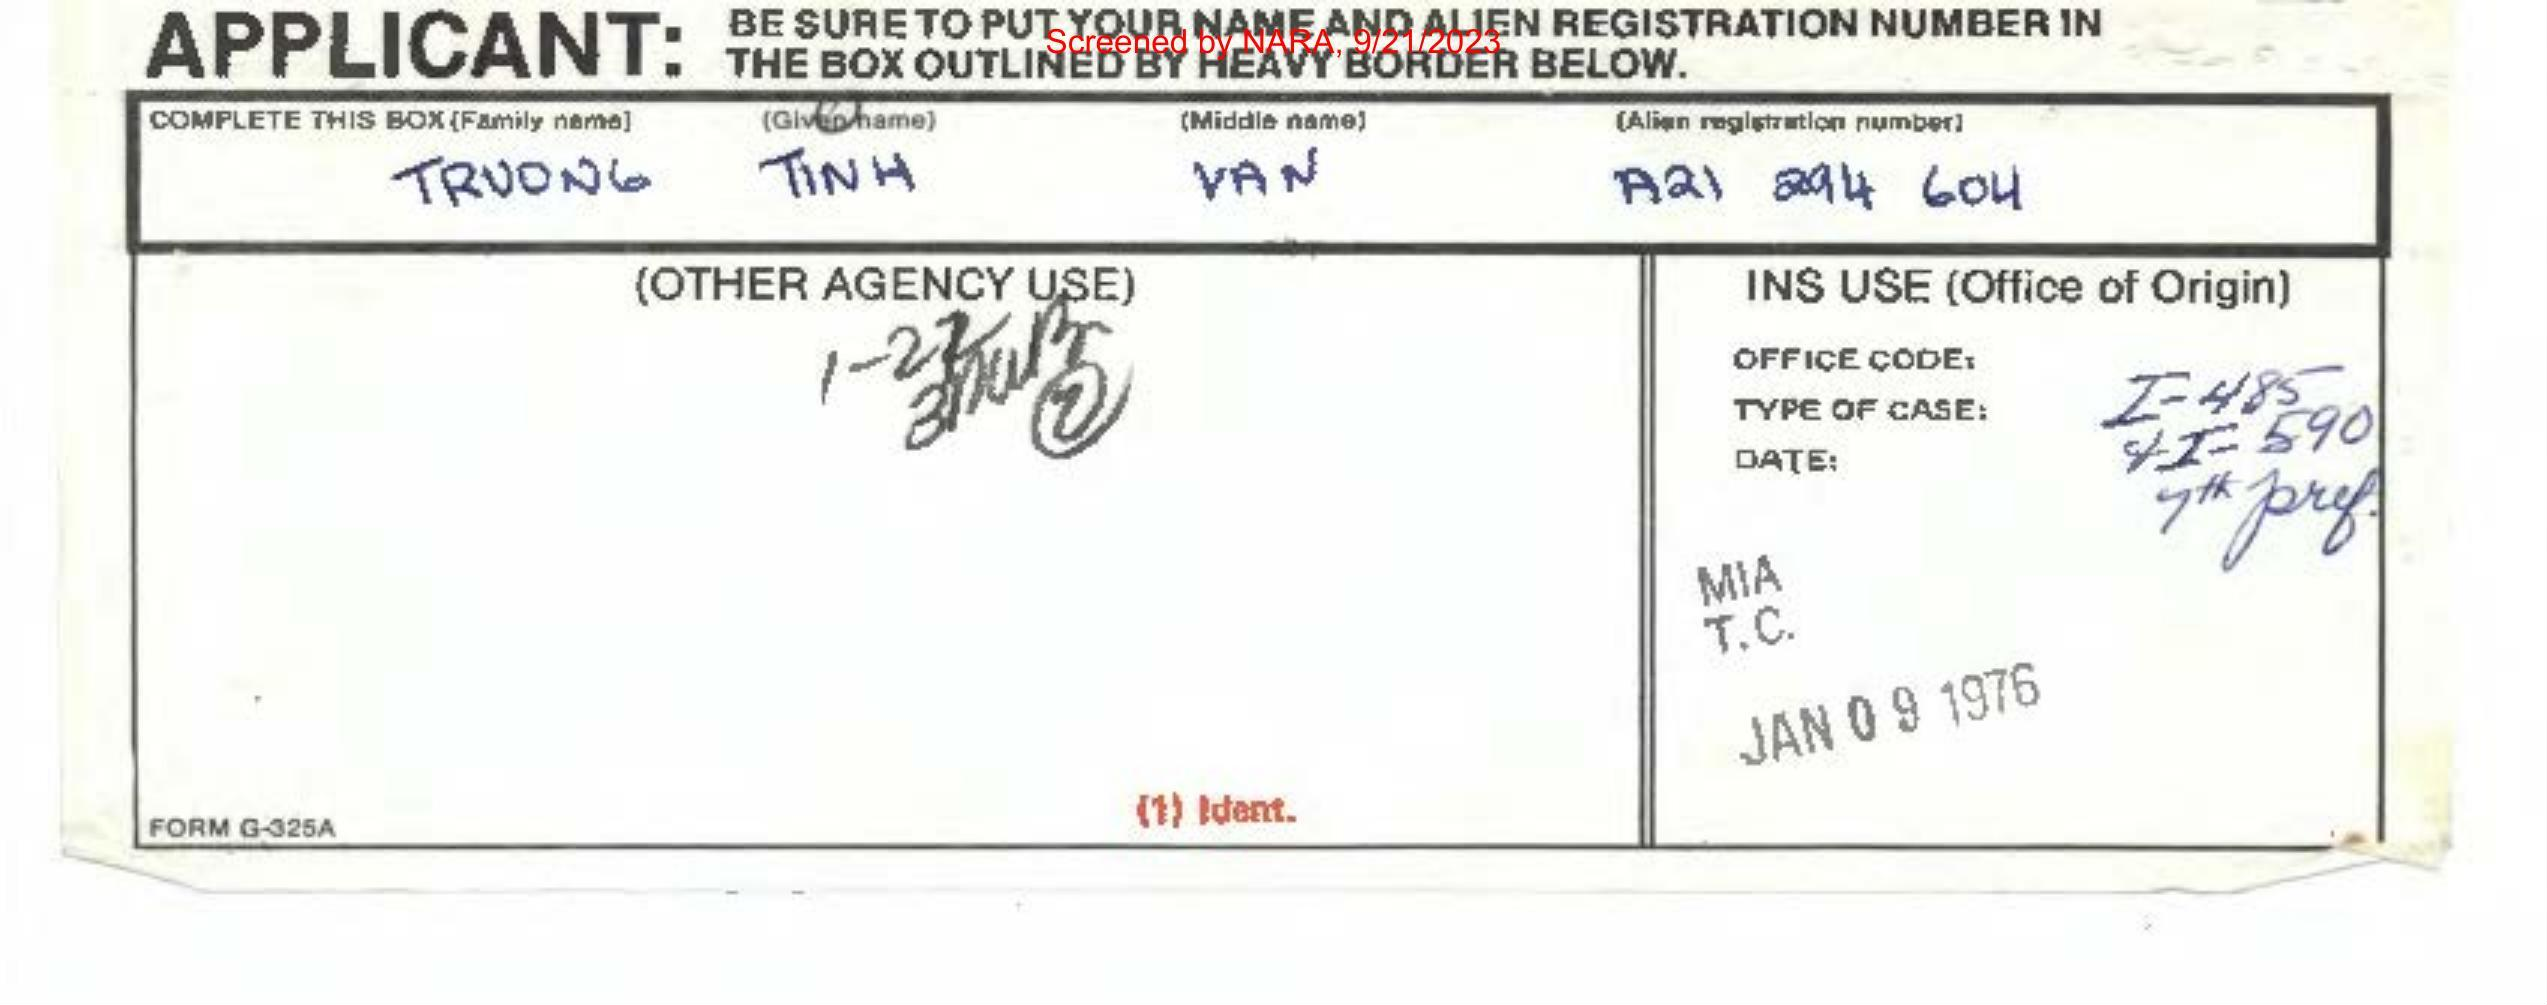 APPLICANT: BE SURE TO PUT YOUR NAME AND ALIEN REGISTRATION NUMBER IN
THE BOX OUTLINED BY HEAVY BORDER BELOW.
Screened by NARA, 9/21/2023
COMPLETE THIS BOX (Family name) (Given name) (Middle name) (Alien registration number)
TRUONG TINH VAN A21 294 604
(OTHER AGENCY USE)
1-27
INS USE (Office of Origin)
OFFICE CODE:
TYPE OF CASE:
DATE:
I-485
& I-590
7th pref.
MIA
T.C.
JAN 09 1976
(1) Ident.
FORM G-325A